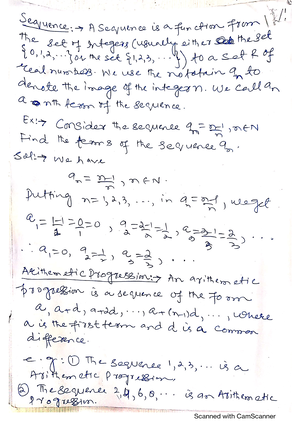 Sequence:→ A Sequence is a function from
the set of Integers (usually either the set
{0,1,2,...} or the set {1,2,3,...}) to a Set R of
real numbers. We use the notation aₙ to
denote the image of the integer n. We call an
a nth term of the sequence.
Ex:→ Consider the sequence aₙ = n-1/n, n∈N
Find the terms of the sequence aₙ.
Sol:→ We have
aₙ = n-1/n, n∈N.
Putting n=1,2,3,..., in aₙ = n-1/n, we get
a₁ = 1-1/1 = 0/1 = 0, a₂ = 2-1/2 = 1/2, a₃ = 3-1/3 = 2/3, ...
∴ a₁=0, a₂=1/2, a₃=2/3, ...
Arithmetic Progression:→ An arithmetic
progression is a sequence of the form
a, a+d, a+2d, ..., a+(n-1)d, ..., where
a is the first term and d is a common
difference.
e.g: ① The sequence 1,2,3,... is a
Arithmetic progression.
② The sequence 2,4,6,8,... is an Arithmetic
progression.
Scanned with CamScanner